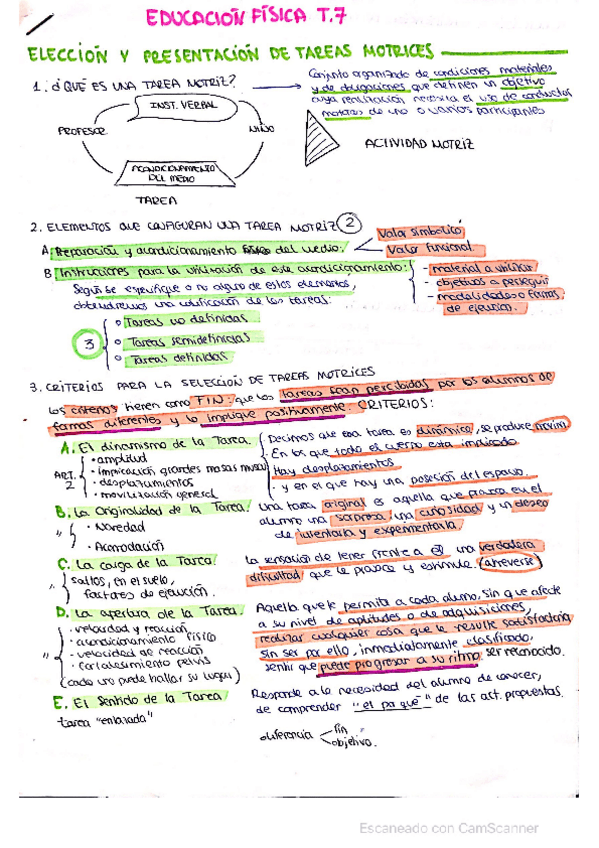 EDUCACIÓN FÍSICA T.7
ELECCIÓN Y PRESENTACIÓN DE TAREAS MOTRICES
1. ¿QUÉ ES UNA TAREA MOTRIZ?
Conjunto organizado de condiciones materiales
y de obligaciones que definen un objetivo
cuya realización necesita el uso de conductas
motoras de uno o varios participantes
INST. VERBAL
PROFESOR
NIÑO
ACONDICIONAMIENTO
DEL MEDIO
TAREA
ACTIVIDAD MOTRIZ
2. ELEMENTOS QUE CONFIGURAN UNA TAREA MOTRIZ 2
A. Preparación y acondicionamiento físico del medio:
Valor simbólico
Valor funcional.
B Instrucciones para la utilización de este acondicionamiento:
- material a utilizar
- objetivos a perseguir
- modalidades o formas
de ejecución.
Según se especifique o no alguno de estos elementos,
obtendremos una clasificación de las tareas:
3
Tareas no definidas
Tareas semidefinidas
Tareas definidas
3. CRITERIOS PARA LA SELECCIÓN DE TAREAS MOTRICES
Los criterios tienen como FIN: que las tareas sean percibidas por los alumnos de
formas diferentes y lo implique positivamente. CRITERIOS:
A. El dinamismo de la Tarea.
ART. 2
· amplitud
· implicación grandes masas muscul
· desplazamientos
· movilización general
Decimos que esa tarea es dinámica, se produce
· En los que todo el cuerpo está implicado
· Hay desplazamientos
· y en el que hay una posesión del espacio.
B. La Originalidad de la Tarea.
"
· Novedad
· Acomodación
Una tarea original es aquella que provoca en el
alumno una sorpresa, una curiosidad y un deseo
de intentarla y experimentarla.
C. La carga de la Tarea.
"
saltos, en el suelo,
factores de ejecución.
La sensación de tener frente a él una verdadera
dificultad que le provoca y estimule. (atreverse)
D. La apertura de la Tarea.
"
· velocidad y reacción
· acondicionamiento físico
· velocidad de reacción
· fortalecimiento pelvis
(cada uno puede hallar su lugar)
Aquella que le permita a cada alumno, sin que afecte
a su nivel de aptitudes o de adquisiciones,
realizar cualquier cosa que le resulte satisfactoria
sin ser por ello, inmediatamente clasificado,
sentir que puede progresar a su ritmo ser reconocido.
E. El Sentido de la Tarea.
tarea "enlazada"
Responde a la necesidad del alumno de conocer,
de comprender "el pa qué" de las act. propuestas.
diferencia
fin
objetivo.
Escaneado con CamScanner